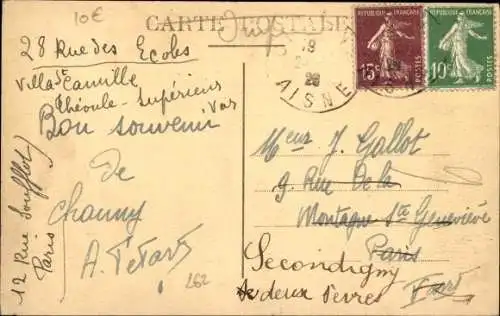 10€
CARTE POSTALE
28 Rue des Ecoles
Villa St Camille
théoule-Supérieur
Var
Bon souvenir
de
Chauny
A. Tetart
162
12 Rue Soufflot
Paris
18
28
AISNE
REPUBLIQUE FRANÇAISE
15c
POSTES
REPUBLIQUE FRANÇAISE
10c
POSTES
Meur J. Gallot
9 Rue De la
Montagne Ste Geneviève
Paris
Secondigny
deux Sèvres